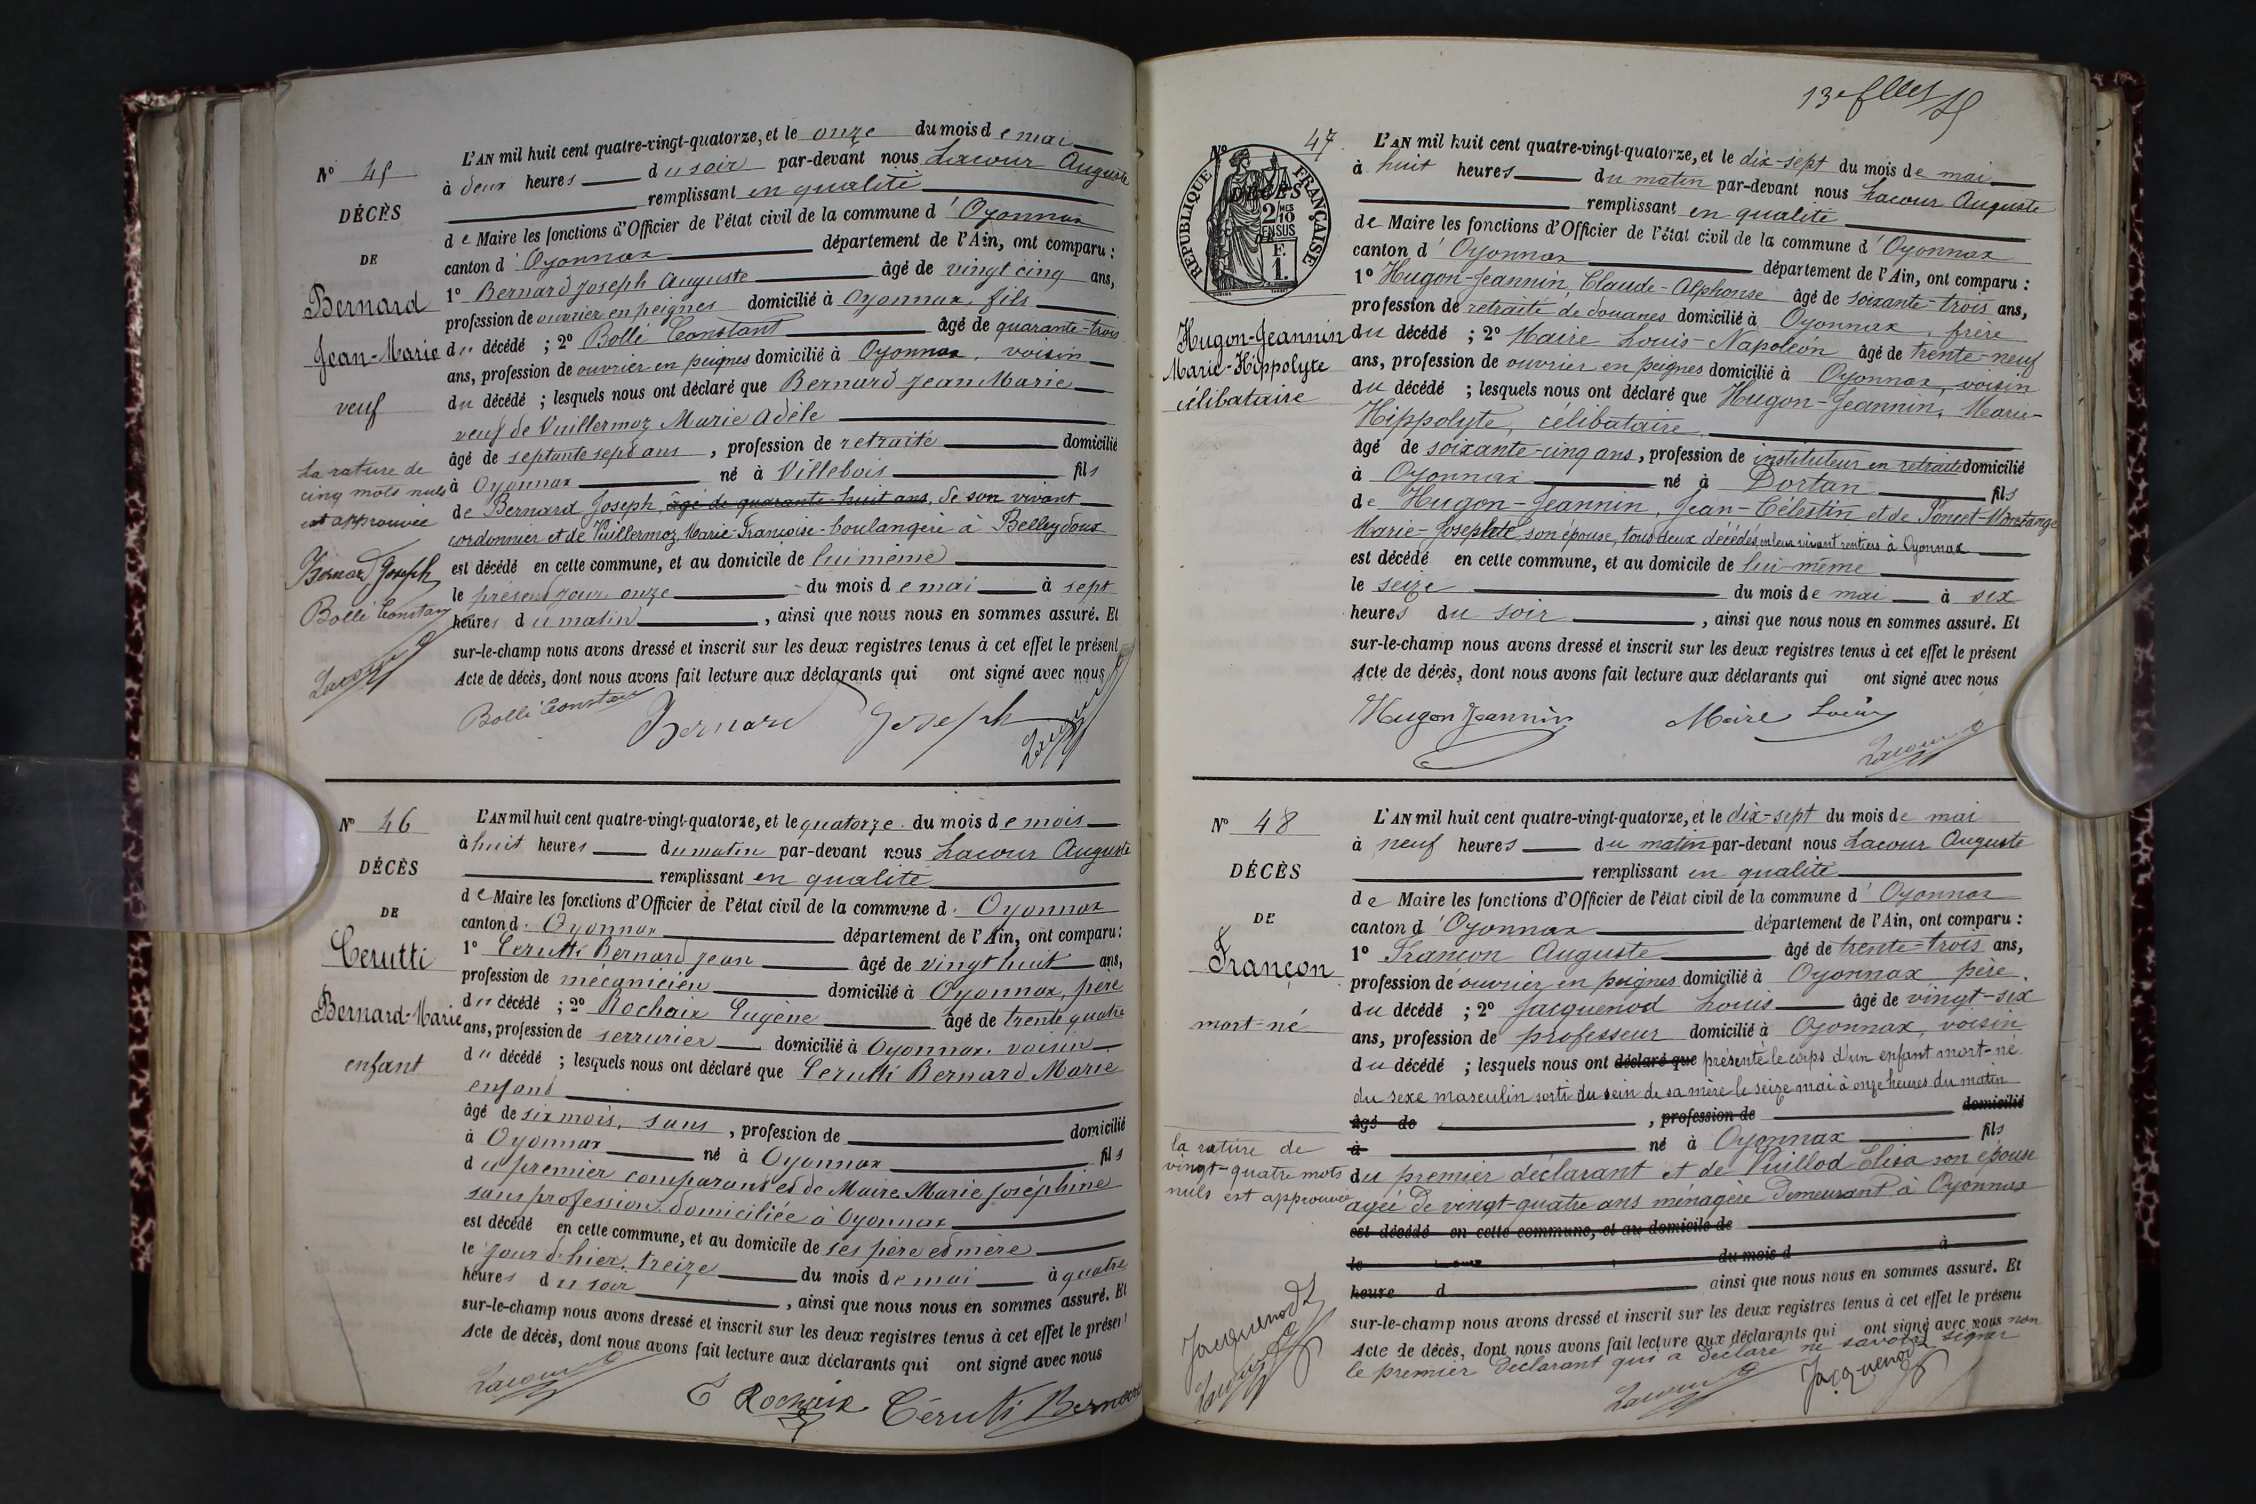 N° 45
DÉCÈS
DE
Bernard
Jean-Marie
veuf
La rature de
cinq mots nuls
est approuvée
Bernard Joseph
Bollé Constant
Lacour A
L'AN mil huit cent quatre-vingt-quatorze, et le onze du mois de mai
à deux heures du soir par-devant nous Lacour Auguste
remplissant en qualité
de Maire les fonctions d'Officier de l'état civil de la commune d'Oyonnax
canton d'Oyonnax département de l'Ain, ont comparu :
1° Bernard Joseph Auguste âgé de vingt cinq ans,
profession de ouvrier en peignes domicilié à Oyonnax, fils
du décédé ; 2° Bollé Constant âgé de quarante-trois
ans, profession de ouvrier en peignes domicilié à Oyonnax, voisin
du décédé ; lesquels nous ont déclaré que Bernard Jean Marie
veuf de Vuillermoz Marie Adèle
âgé de septante sept ans, profession de retraité domicilié
à Oyonnax né à Villebois fils
de Bernard Joseph, âgé de quarante-huit ans, de son vivant
cordonnier et de Vuillermoz Marie-Françoise-boulangère à Belleydoux
est décédé en cette commune, et au domicile de lui même
le présent jour onze du mois de mai à sept
heures du matin, ainsi que nous nous en sommes assuré. Et
sur-le-champ nous avons dressé et inscrit sur les deux registres tenus à cet effet le présent
Acte de décès, dont nous avons fait lecture aux déclarants qui ont signé avec nous
Bollé Constant Bernard Joseph Lacour
N° 46
DÉCÈS
DE
Cerutti
Bernard-Marie
enfant
L'AN mil huit cent quatre-vingt-quatorze, et le quatorze du mois de mois
à huit heures du matin par-devant nous Lacour Auguste
remplissant en qualité
de Maire les fonctions d'Officier de l'état civil de la commune d. Oyonnax
canton d. Oyonnax département de l'Ain, ont comparu :
1° Cerutti Bernard Jean âgé de vingt huit ans,
profession de mécanicien domicilié à Oyonnax, père
du décédé ; 2° Rochaix Eugène âgé de trente quatre
ans, profession de serrurier domicilié à Oyonnax. voisin
du décédé ; lesquels nous ont déclaré que Cerutti Bernard Marie
enfant
âgé de six mois, sans, profession de domicilié
à Oyonnax né à Oyonnax fils
du premier comparant et de Maire Marie Joséphine
sans profession domiciliée à Oyonnax
est décédé en cette commune, et au domicile de ses père et mère
le jour d'hier, treize du mois de mai à quatre
heures du soir, ainsi que nous nous en sommes assuré. Et
sur-le-champ nous avons dressé et inscrit sur les deux registres tenus à cet effet le présent
Acte de décès, dont nous avons fait lecture aux déclarants qui ont signé avec nous
Lacour A
E Rochaix Cérutti Bernard
13e
N° 47
DÉCÈS
RÉPUBLIQUE FRANÇAISE
2/10 MES
EN SUS
1 F.
Hugon-Jeannin
Marie-Hippolyte
célibataire
L'AN mil huit cent quatre-vingt-quatorze, et le dix-sept du mois de mai
à huit heures du matin par-devant nous Lacour Auguste
remplissant en qualité
de Maire les fonctions d'Officier de l'état civil de la commune d'Oyonnax
canton d'Oyonnax département de l'Ain, ont comparu :
1° Hugon-Jeannin, Claude-Alphonse âgé de soixante-trois ans,
profession de retraité de douanes domicilié à Oyonnax, frère
du décédé ; 2° Maire Louis-Napoléon âgé de trente-neuf
ans, profession de ouvrier en peignes domicilié à Oyonnax, voisin
du décédé ; lesquels nous ont déclaré que Hugon-Jeannin, Marie-
Hippolyte, célibataire
âgé de soixante-cinq ans, profession de instituteur en retraite domicilié
à Oyonnax né à Dortan fils
de Hugon-Jeannin, Jean-Célestin et de Poncet-Montange
Marie-Josephte son épouse, tous deux décédés en leur vivant rentiers à Oyonnax
est décédé en cette commune, et au domicile de lui-même
le seize du mois de mai à six
heures du soir, ainsi que nous nous en sommes assuré. Et
sur-le-champ nous avons dressé et inscrit sur les deux registres tenus à cet effet le présent
Acte de décès, dont nous avons fait lecture aux déclarants qui ont signé avec nous
Hugon Jeannin Maire Louis
Lacour A
N° 48
DÉCÈS
DE
Françon
mort-né
la rature de
vingt-quatre mots
nuls est approuvée
Jacquenod L
Lacour A
L'AN mil huit cent quatre-vingt-quatorze, et le dix-sept du mois de mai
à neuf heures du matin par-devant nous Lacour Auguste
remplissant en qualité
de Maire les fonctions d'Officier de l'état civil de la commune d'Oyonnax
canton d'Oyonnax département de l'Ain, ont comparu :
1° Françon Auguste âgé de trente-trois ans,
profession de ouvrier en peignes domicilié à Oyonnax père
du décédé ; 2° Jacquenod Louis âgé de vingt-six
ans, profession de professeur domicilié à Oyonnax, voisin
du décédé ; lesquels nous ont déclaré que présenté le corps d'un enfant mort-né
du sexe masculin sorti du sein de sa mère le seize mai à onze heures du matin
âgé de , profession de domicilié
à né à Oyonnax fils
du premier déclarant et de Vuillod Élisa son épouse
agée de vingt-quatre ans ménagère demeurant à Oyonnax
est décédé en cette commune, et au domicile de
le du mois d à
heure d ainsi que nous nous en sommes assuré. Et
sur-le-champ nous avons dressé et inscrit sur les deux registres tenus à cet effet le présent
Acte de décès, dont nous avons fait lecture aux déclarants qui ont signé avec nous non
le premier déclarant qui a déclaré ne savoir signer
Lacour A Jacquenod L